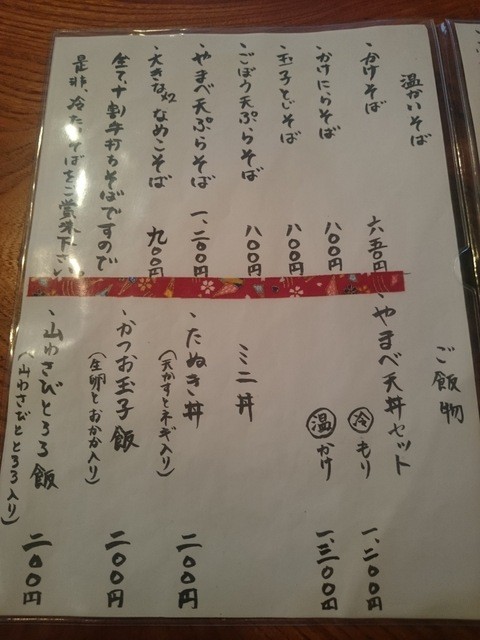 温かいそば
・かけそば 六五〇円
・かけにらそば 八〇〇円
・玉子とじそば 八〇〇円
・ごぼう天ぷらそば 八〇〇円
・やまべ天ぷらそば 一、二〇〇円
・大きななめこそば 九〇〇円
全て、十割手打ちそばですので
是非、冷たいそばをご賞味下さい
ご飯物
・やまべ天丼セット
冷 もり 一、二〇〇円
温 かけ 一、三〇〇円
ミニ丼
・たぬき丼 二〇〇円
(天かすとネギ入り)
・かつお玉子飯 二〇〇円
(生卵とおかか入り)
・山わさびとろろ飯 二〇〇円
(山わさびととろろ入り)